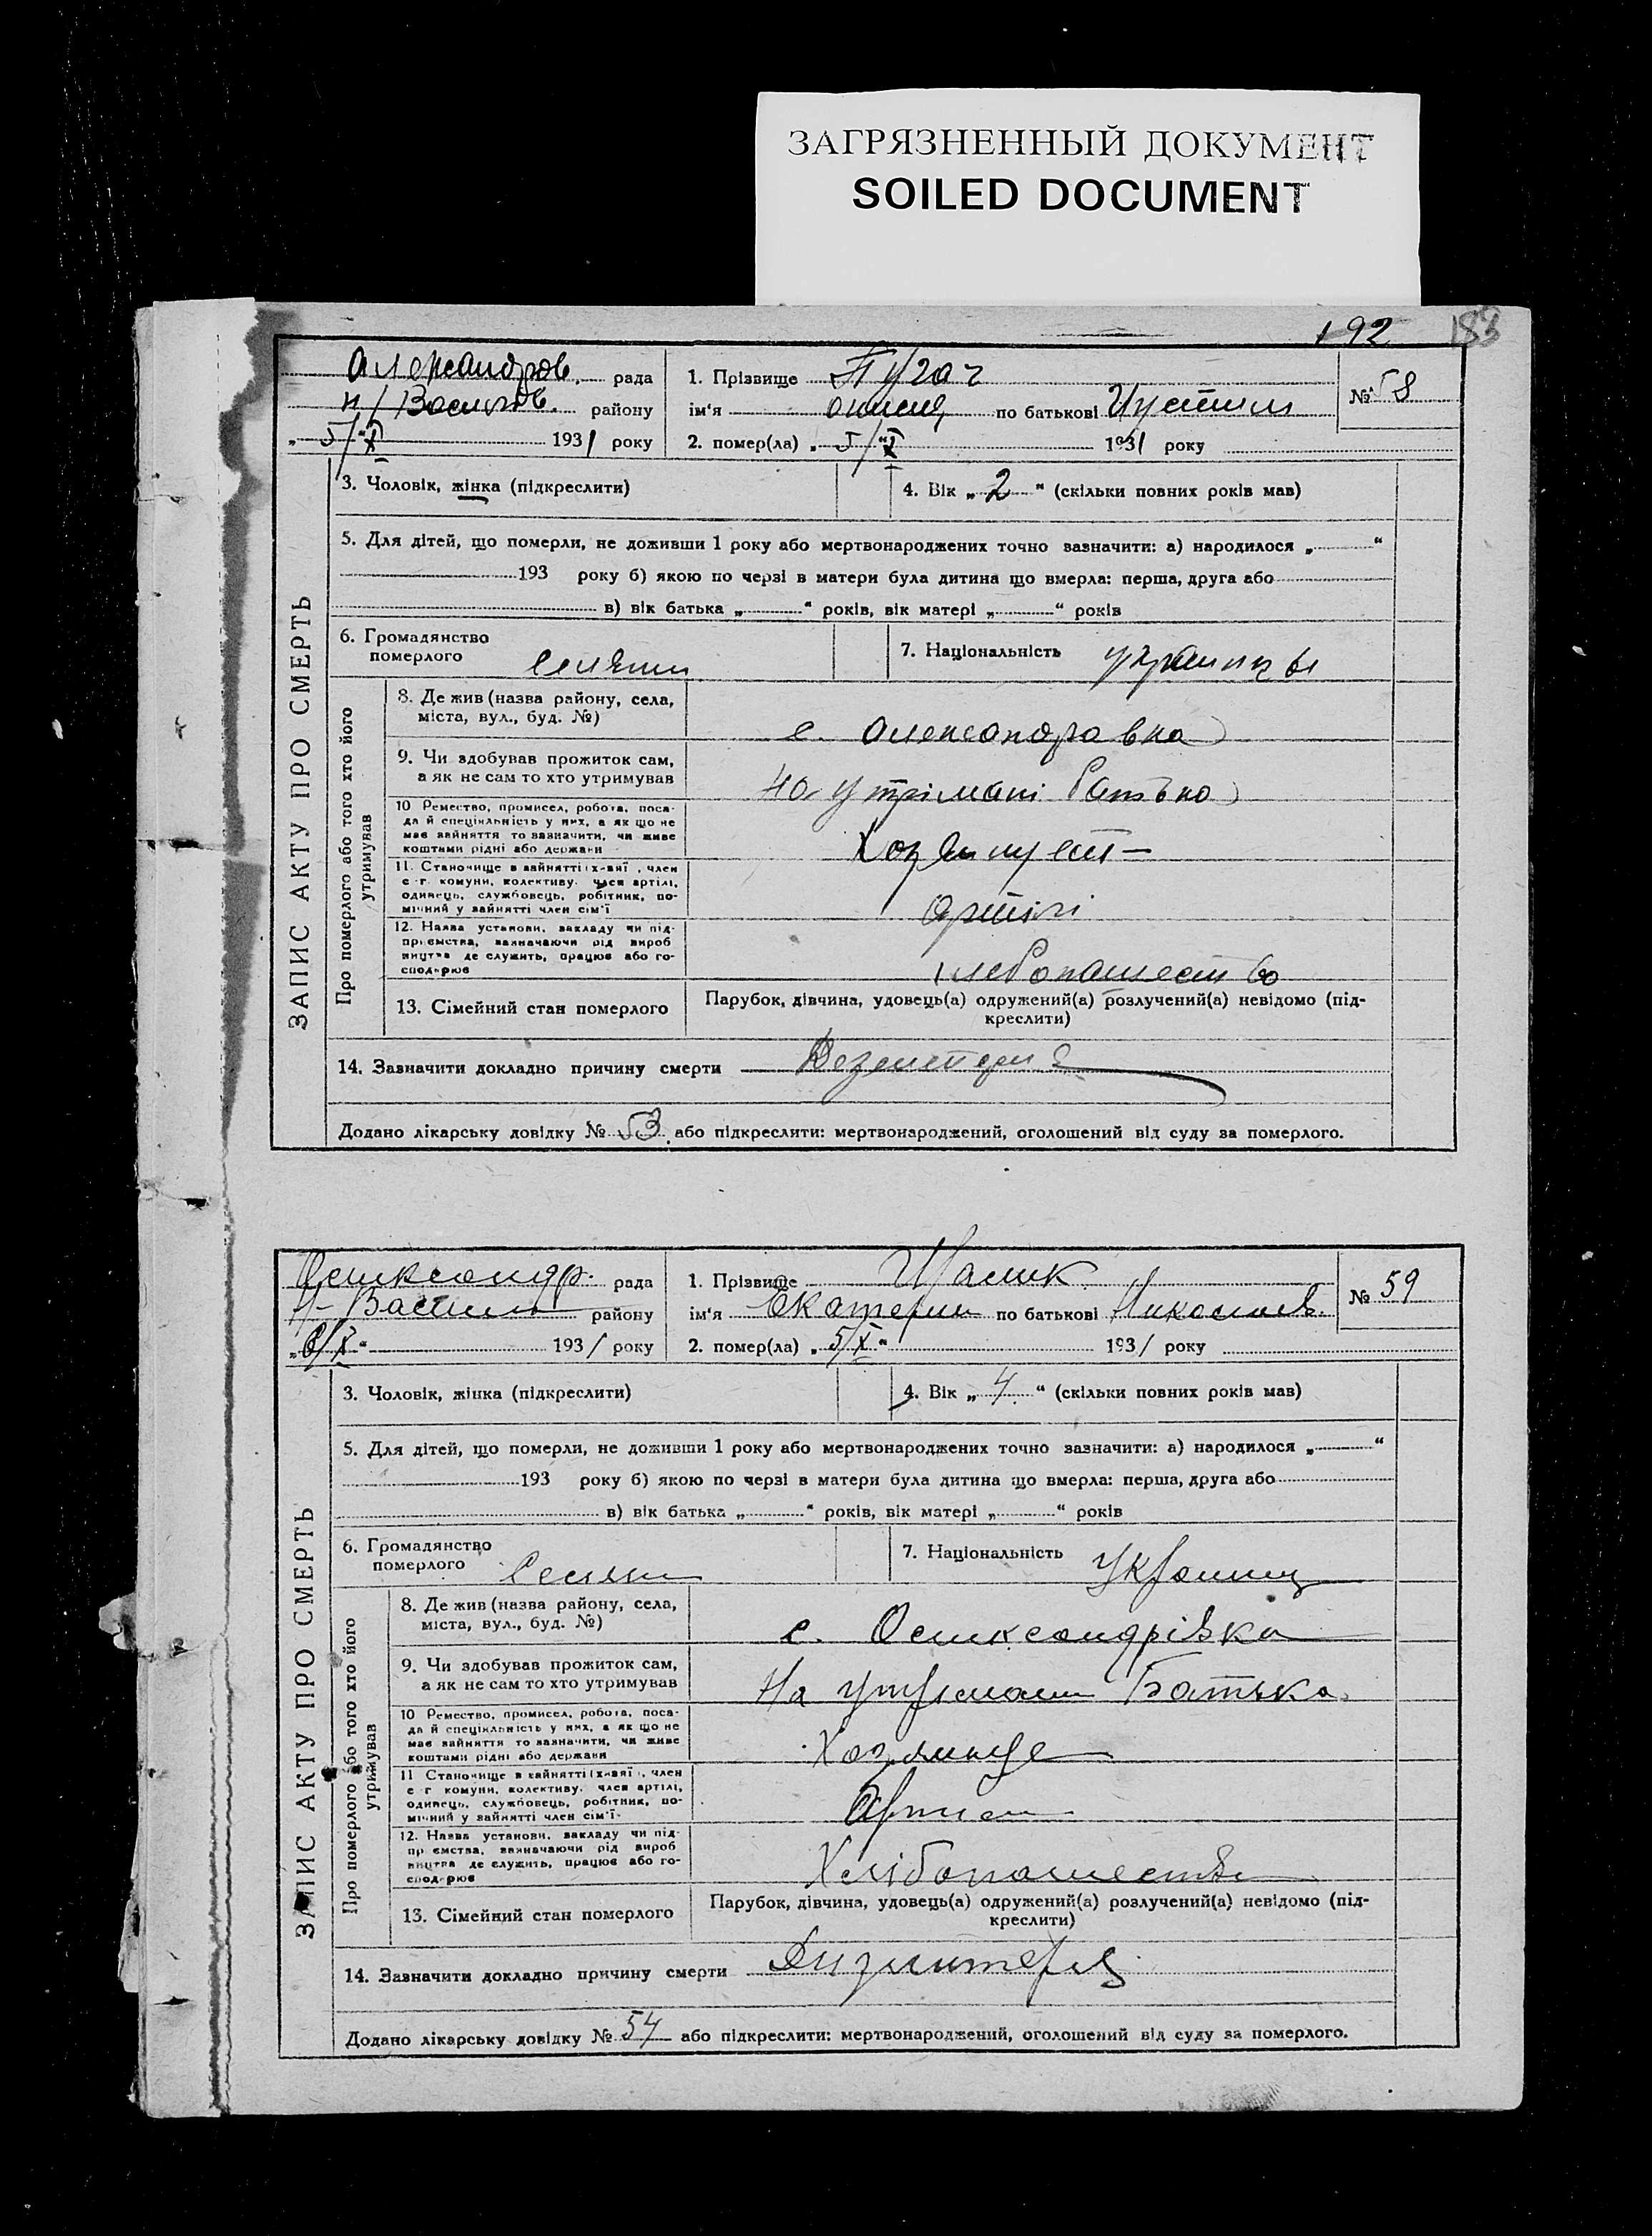 ЗАГРЯЗНЕННЫЙ ДОКУМЕНТ
SOILED DOCUMENT
192 183
Александров. рада
н/Васильев. району
„5/X“ 1931 року
1. Прізвище Пугач
ім'я по батькові Иустим
№ 58
2. помер(ла) „5/X“ 1931 року
ЗАПИС АКТУ ПРО СМЕРТЬ
3. Чоловік, жінка (підкреслити)
4. Вік „2“ (скільки повних років мав)
5. Для дітей, що померли, не доживши 1 року або мертвонароджених точно зазначити: а) народилося „ “
193 року б) якою по черзі в матери була дитина що вмерла: перша, друга або
в) вік батька „ “ років, вік матері „ “ років
6. Громадянство
померлого Селянин
7. Національність
Про померлого або того хто його
утримував
8. Де жив (назва району, села,
міста, вул., буд. №)
с. Александравка
9. Чи здобував прожиток сам,
а як не сам то хто утримував
на утрімані батька
10 Ремество, промисел, робота, поса-
да й спеціяльність у них, а як що не
має зайняття то зазначити, чи живе
коштами рідні або держави
11. Становище в зайнятті (х-вяї, член
с-г. комуни, колективу. член артілі,
одинець, службовець, робітник, по-
мічний у зайнятті член сім'ї
Артілі
12. Назва установи, закладу чи під-
приємства, зазначаючи рід вироб
ництва де служить, працює або го-
сподарює
хлебопашество
13. Сімейний стан померлого
Парубок, дівчина, удовець(а) одружений(а) розлучений(а) невідомо (під-
креслити)
14. Зазначити докладно причину смерти Дезентерия
Додано лікарську довідку № 53 або підкреслити: мертвонароджений, оголошений від суду за померлого.
Олександр. рада
Н-Васил району
„6/X“ 1931 року
1. Прізвище
ім'я Екатерин по батькові Николаев.
№ 59
2. помер(ла) „5/X“ 1931 року
ЗАПИС АКТУ ПРО СМЕРТЬ
3. Чоловік, жінка (підкреслити)
4. Вік „4“ (скільки повних років мав)
5. Для дітей, що померли, не доживши 1 року або мертвонароджених точно зазначити: а) народилося „ “
193 року б) якою по черзі в матери була дитина що вмерла: перша, друга або
в) вік батька „ “ років, вік матері „ “ років
6. Громадянство
померлого Селянин
7. Національність Украинц
Про померлого або того хто його
утримував
8. Де жив (назва району, села,
міста, вул., буд. №)
с. Олександрівка
9. Чи здобував прожиток сам,
а як не сам то хто утримував
На утримани Батька
10 Ремество, промисел, робота, поса-
да й спеціяльність у них, а як що не
має зайняття то зазначити, чи живе
коштами рідні або держави
11 Становище в зайнятті (х-вяї, член
с-г комуни, колективу. член артілі,
одинець, службовець, робітник, по-
мічний у зайнятті член сім'ї
12. Назва установи, закладу чи під-
приємства, зазначаючи рід вироб
ництва де служить, працює або го-
сподарює
Хлібопашество
13. Сімейний стан померлого
Парубок, дівчина, удовець(а) одружений(а) розлучений(а) невідомо (під-
креслити)
14. Зазначити докладно причину смерти Дизинтерия
Додано лікарську довідку № 54 або підкреслити: мертвонароджений, оголошений від суду за померлого.